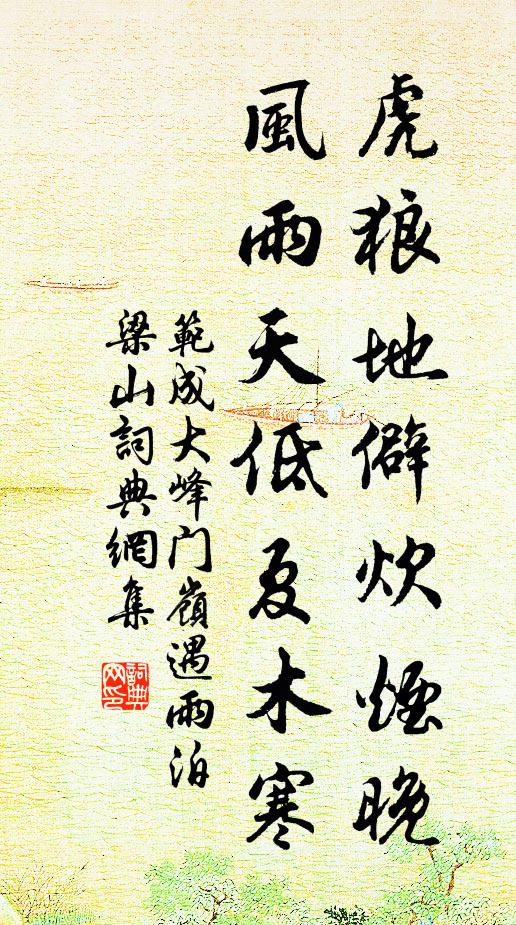 虎狼地僻炊煙晚
風雨天低夏木寒
範成大峰门嶺遇雨泊
梁山詞典網集
詞典
网印